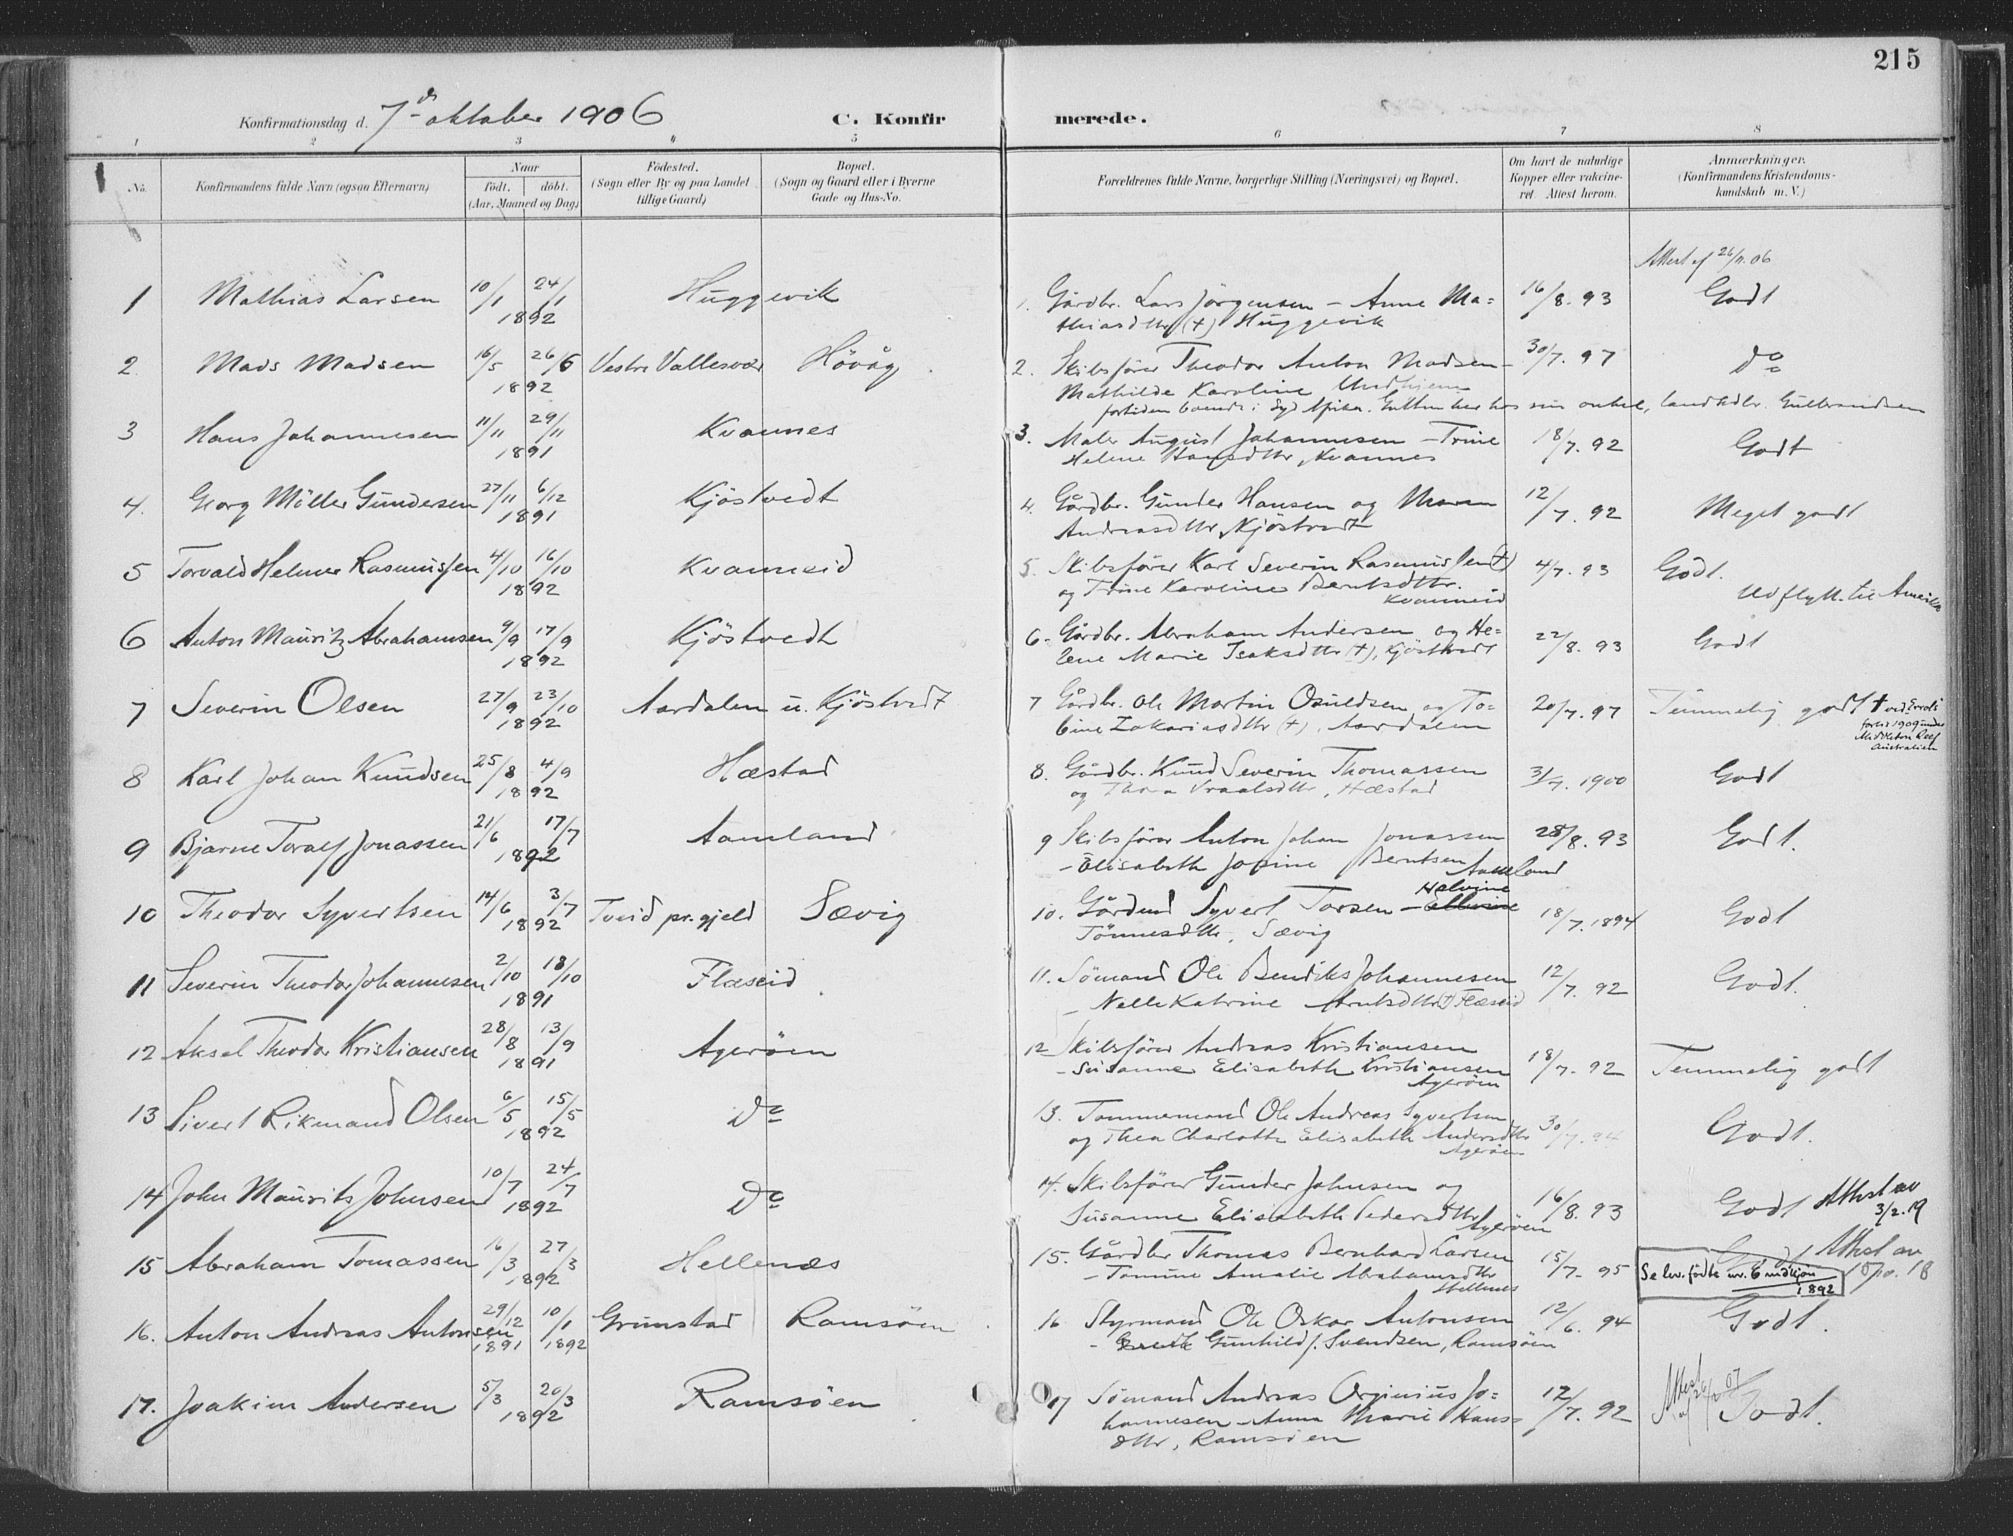 215
Konfirmationsdag d. 7de oktober 1906 C. Konfirmerede.
1 2 3 4 5 6 7 8
No. Konfirmandens fulde Navn (ogsaa Efternavn) Naar födt. döbt. (Aar, Maaned og Dag) Födested. (Sogn eller By og paa Landet tillige Gaard) Bopæl. (Sogn og Gaard eller i Byerne Gade og Hus-No. Forældrenes fulde Navne, borgerlige Stilling (Næringsvei) og Bopæl. Om havt de naturlige Kopper eller vaccineret. Attest herom. Anmærkninger. (Konfirmandens Kristendomskundskab m.V.)
Attest af 26/11.06
1 Mathias Larsen 10/1 24/1 1892 Huggevik 1. Gårdbr. Lars Jörgensen - Anne Ma=
thiasdtr (+) Huggevik 16/8.93 Godt
2 Mads Madsen 16/5 26/6 1892 Vestre Vallesvær Hövåg 2. Skibsförer Theodor Anton Madsen -
Mathilde Karoline 30/7.97 Do
fortiden boende i Syd Afrika. Gutten her hos sin onkel, landhdlr. Gulbrandsen
3 Hans Johannesen 11/11 29/11 1891 Kvannes 3. Maler August Johannesen - Trine
Helene Hansdtr, Kvannes 18/7.92 Godt
4. Georg Möller Gundersen 27/11 6/12 1891 Kjöstvedt 4. Gårdbr. Gunder Hansen og Maren
Andreasdtr, Kjöstvedt 12/7.92 Meget godt
5 Torvald Helmer Rasmussen 4/10 16/10 1892 Kvanneid 5. Skibsförer Karl Severin Rasmussen (+)
og Trine Karoline Berntsdtr.
Kvanneid 4/7.93 Godt.
Udflytt. til Amerika
6 Anton Mauritz Abrahamsen 9/9 17/9 1892 Kjöstvedt 6. Gårdbr. Abraham Andersen og He=
lene Marie Isaksdtr (+), Kjöstvedt 22/8.93 Godt
7 Severin Olsen 27/9 23/10 1892 Aardalen u. Kjöstvedt 7 Gårdbr. Ole Martin Osuldsen og To=
bine Zakariasdtr (+), Aardalen 20/7.97 Temmelig godt + ved
forlis 1909 under
Middleton Reef
Australien
8 Karl Johan Knudsen 25/8 4/9 1892 Hæstad 8. Gårdbr. Knud Severin Thomassen
og Thora Vraalsdtr, Hæstad 3/7.1900 Godt
9 Bjarne Toralf Jonassen 21/6 17/7 1892 Aamland 9 Skibsförer Anton Johan Jonassen
- Elisabeth Josine Berntsen Aamland 28/8.93 Godt.
10 Theodor Syvertsen 14/6 3/7 1892 Tveid pr.gjeld Sævig 10. Gårdmd Syvert Torsen - Helvine
Tönnesdtr, Sævig 18/7.1894 Godt
11 Severin Theodor Johannesen 2/10 18/10 1891 Flæseid 11. Sömand Ole Bendiks Johannesen
- Nelle Katrine Arntsdtr + Flæseid 12/7.92 Godt.
12 Aksel Theodor Kristiansen 28/8 13/9 1891 Ageröen 12 Skibsförer Andreas Kristiansen
- Susanne Elisabeth Kristiansen
Ageröen 18/7.92 Temmelig godt
13 Sivert Rikmand Olsen 6/5 15/5 1892 Do 13. Tömmermand Ole Andreas Syvertsen
og Thea Charlotte Elisabeth Andersdtr
Ageröen 30/7.94 Godt.
14 John Maurits Johnsen 10/7 24/7 1892 Do 14. Skibsförer Gunder Johnsen og
Susanne Elisabeth Pedersdtr
Ageröen 16/8.93 Godt Attest av
3/2.19
15 Abraham Tomassen 16/3 27/3 1892 Hellenæs 15. Gårdbr Thomas Bernhard Larsen
- Tomine Amalie Abrahamsdtr
Hellenæs 15/7.95 Godt Attest av
Se lev. födte nr. 6 mdkjön
1892
16. Anton Andreas Antonsen 29/12 1891 10/1 1892 Grimstad Ramsöen 16 Styrmand Ole Oskar Antonsen
- Gunhild f. Svendsen, Ramsöen 12/6.94 Godt.
17. Joakim Andersen 5/3 20/3 1892 Ramsöen 17 Sömand Andreas Orginius Jo=
hannesen - Anna Marie Hans=
dtr, Ramsöen 12/7.92 Attest Godt.